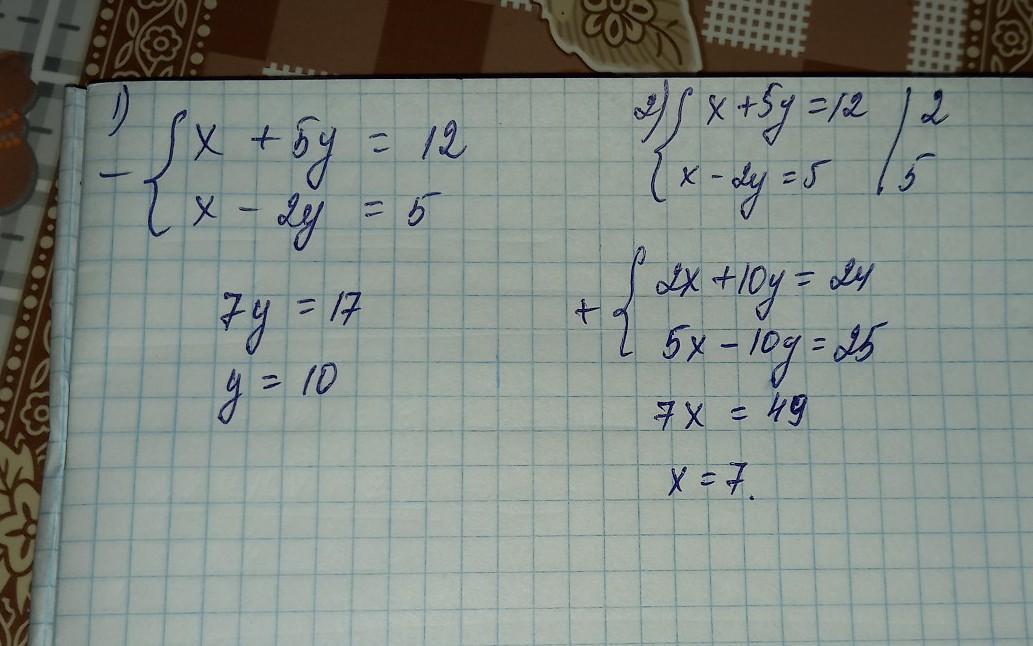 1)
x + 5y = 12
- {
x - 2y = 5
7y = 17
y = 10
2) { x + 5y = 12 | 2
x - 2y = 5 | 5
+ { 2x + 10y = 24
5x - 10y = 25
7x = 49
x = 7.